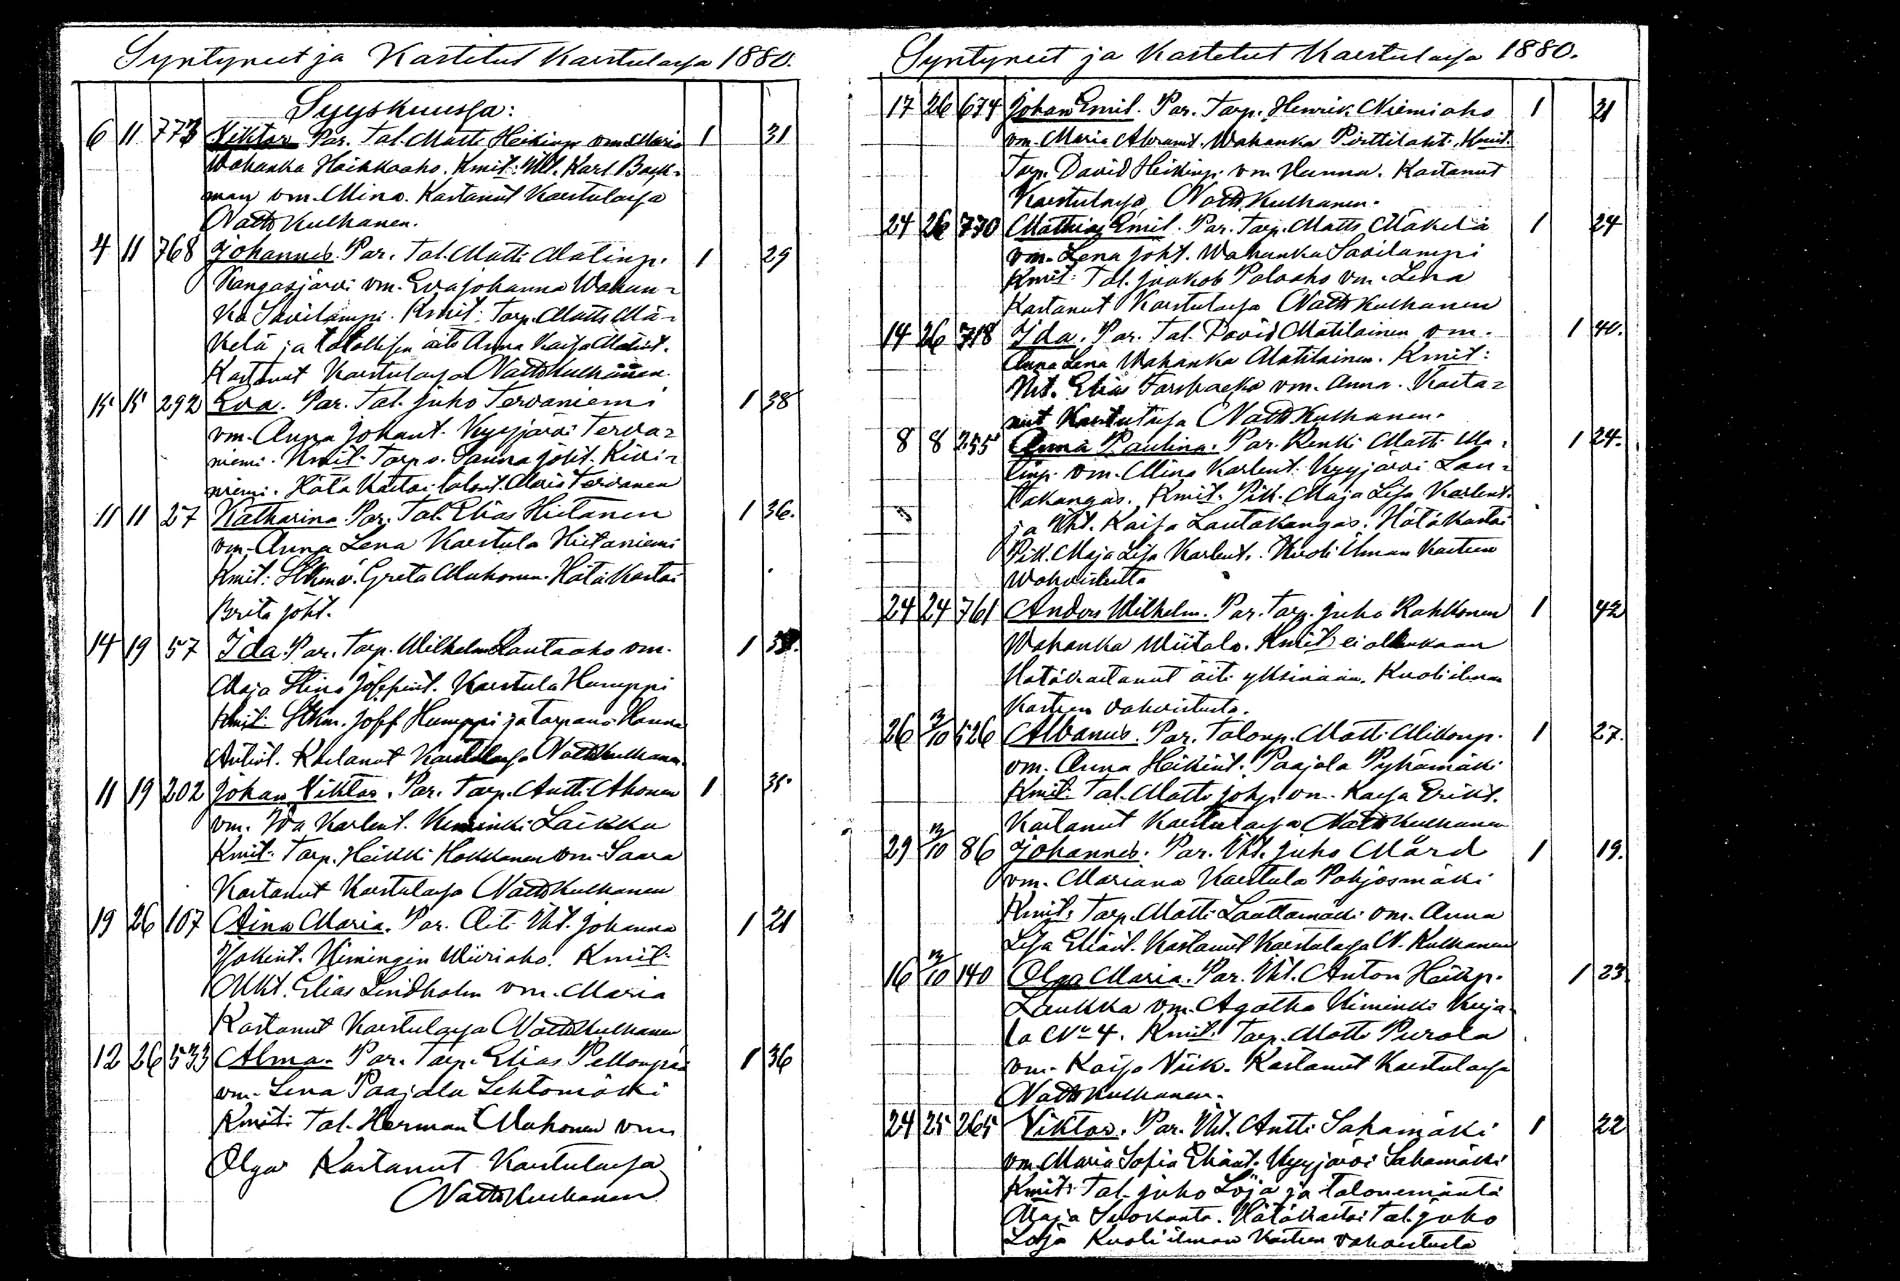 Syntyneet ja Kastetut Karstulassa 1880.
Syyskuussa:
6 11 773 Viktor Par. Tal. Matti Heikinp. vm. Maria 1 31
Wahanka Heikkaaho. Kmit: Mkt. Karl Back-
man vm. Mina. Kastanut Karstulassa
Natth Kulhanen.
4 11 768 Johannes. Par. Tal. Matti Matinp. 1 29
Kangasjärvi vm. Eva Johanna Wahan-
ka Savilampi. Kmit: Torp. Matts Mä-
kelä ja talollisen äiti Anna Kaisa Matist.
Kastanut Karstulassa Natth Kulhanen.
15 15 292 Eva. Par. Tal. Juho Tervaniemi 1 38
vm. Anna Johant. Kyyjärvi Terva-
niemi. Kmit: Torp. s. Sanna Joht. Kivi-
niemi. Hätä Kastoi talont. Maria Tervanen
11 11 27 Katharina Par. Tal. Elias Hietanen 1 36.
vm. Anna Lena Karstula Hietaniemi
Kmit: Greta Muhonen. Hätä Kastoi
Brita Joht.
14 19 57 Ida. Par. Torp. Wilhelm Rautaaho vm. 1
Maja Stina Josefint. Karstula Humppi
Kmit: Itkm. Josf Humppi ja Hanna
Antint. Kastanut Karstulassa Natth Kulhanen.
11 19 202 Johan Viktor. Par. Torp. Antti Ahonen 1 35
vm. Ida Karlent. Kiminki Laikka
Kmit: Torp. Heikki Hokkanen vm. Saara
Kastanut Karstulassa Natth Kulhanen
19 26 107 Aina Maria. Par. Äiti Itkt. Johanna 1 21
Jokint. Kimingin Kmit:
Mkt. Elias Lindholm vm. Maria
Kastanut Karstulassa Natth Kulhanen
12 26 533 Alma. Par. Torp. Elias Pellonpää 1 36
vm. Lena Paajala Lehtomäki
Kmit: Tal. Herman Muhonen vm.
Olga Kastanut Karstulassa
Natth Kulhanen
Syntyneet ja Kastetut Karstulassa 1880.
17 26 674 Johan Emil. Par. Torp. Henrik Niemiaho 1 21
vm. Maria Abramt. Wahanka Pirttilahti. Kmit.
Torp. David Heikinp. vm. Hanna. Kastanut
Karstulassa Natth Kulhanen.
24 26 770 Mathias Emil. Par. Torp. Matts Mäkelä 1 24
vm. Lena Joht. Wahanka Savilampi
Kmit: Tal. Jaakob Paloaho vm. Lena
Kastanut Karstulassa Natth Kulhanen
14 26 718 Ida. Par. Tal. David Matilainen vm. 1 40.
Anna Lena Wahanka Matilainen. Kmit:
Elias Forsbacka vm. Anna. Kasta-
nut Karstulassa Natth Kulhanen.
8 8 255 Anna Paulina. Par. Renki Matti Ma- 1 24.
tinp. vm. Mina Karlent. Kyyjärvi Lau-
takangas. Kmit: Piik. Maja Lisa Karlent.
ja Itkt. Kaisa Lautakangas. Hätä Kastoi
Piik. Maja Lisa Karlent. Kuoli ilman Kasteen
Wahvistusta
24 24 761 Anders Wilhelm. Par. Torp. Juho Rahkonen 1 42
Wahanka Wiitala. Kmit: ei ollunkaan
Hätäkastanut äiti yksinään. Kuoli ilman
Kasteen vahvistusta.
26 3/10 526 Albanus. Par. Talonp. Matti Mikonp. 1 27.
vm. Anna Heikint. Paajala Pyhämäki
Kmit: Tal. Matti Johp. vm. Kaisa Erikt.
Kastanut Karstulassa Natth Kulhanen
29 3/10 86 Johannes. Par. Itkt. Juho Mård 1 19.
vm. Mariana Karstula Pohjosmäki
Kmit: Torp. Matti Lauttamäki vm. Anna
Lisa Eliäst. Kastanut Karstulassa N. Kulhanen
16 3/10 140 Olga Maria. Par. Itkt. Anton Heikkp. 1 23.
Laukka vm. Agatha Kiminki Kuja-
la No 4. Kmit: Torp. Matti Purola
vm. Kaisa Viik. Kastanut Karstulassa
Natth Kulhanen.
24 25 265 Viktor. Par. Itkt. Antti Sahamäki 1 22
vm. Maria Sofia Eliäst. Kyyjärvi Sahamäki
Kmit: Tal. Juho Löja ja talonemäntä
Maja Suokanta. Hätäkastoi tal. Juho
Löja Kuoli ilman Kasteen vahvistusta